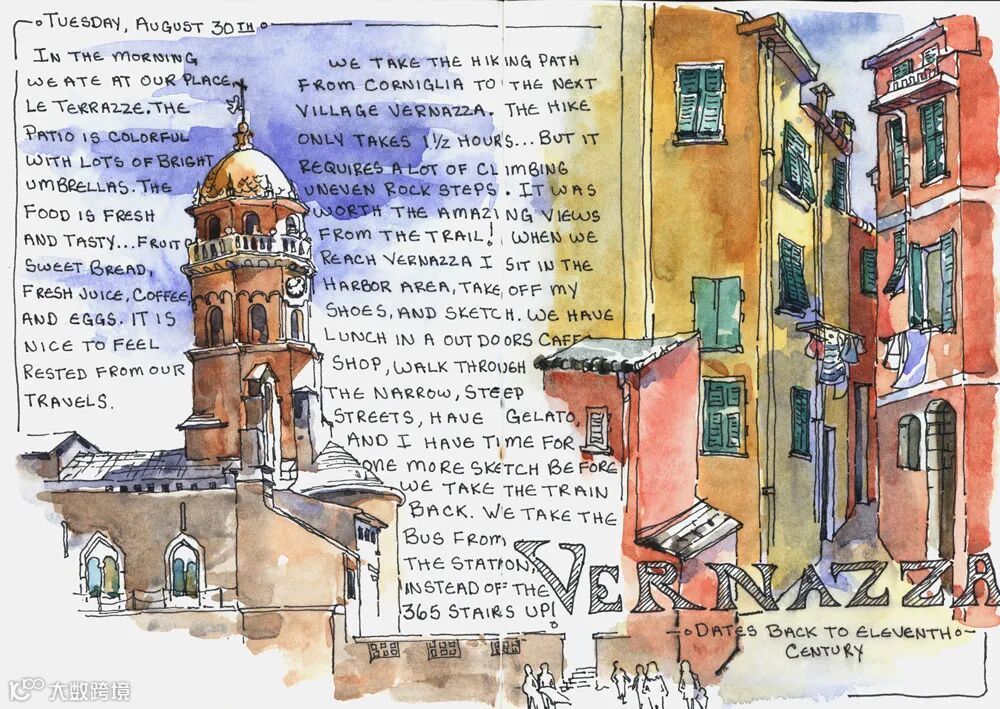 Tuesday, August 30th
In the morning
we ate at our place,
Le Terrazze. The
patio is colorful
with lots of bright
umbrellas. The
food is fresh
and tasty... fruit
sweet bread,
fresh juice, coffee
and eggs. It is
nice to feel
rested from our
travels.
We take the hiking path
from Corniglia to the next
village Vernazza. The hike
only takes 1½ hours... but it
requires a lot of climbing
uneven rock steps. It was
worth the amazing views
from the trail! When we
reach Vernazza I sit in the
harbor area, take off my
shoes, and sketch. We have
lunch in a outdoors caffe
shop, walk through
the narrow, steep
streets, have gelato,
and I have time for
one more sketch before
we take the train
back. We take the
bus from
the station,
instead of the
365 stairs up!
Vernazza
Dates back to eleventh
century
大数跨境